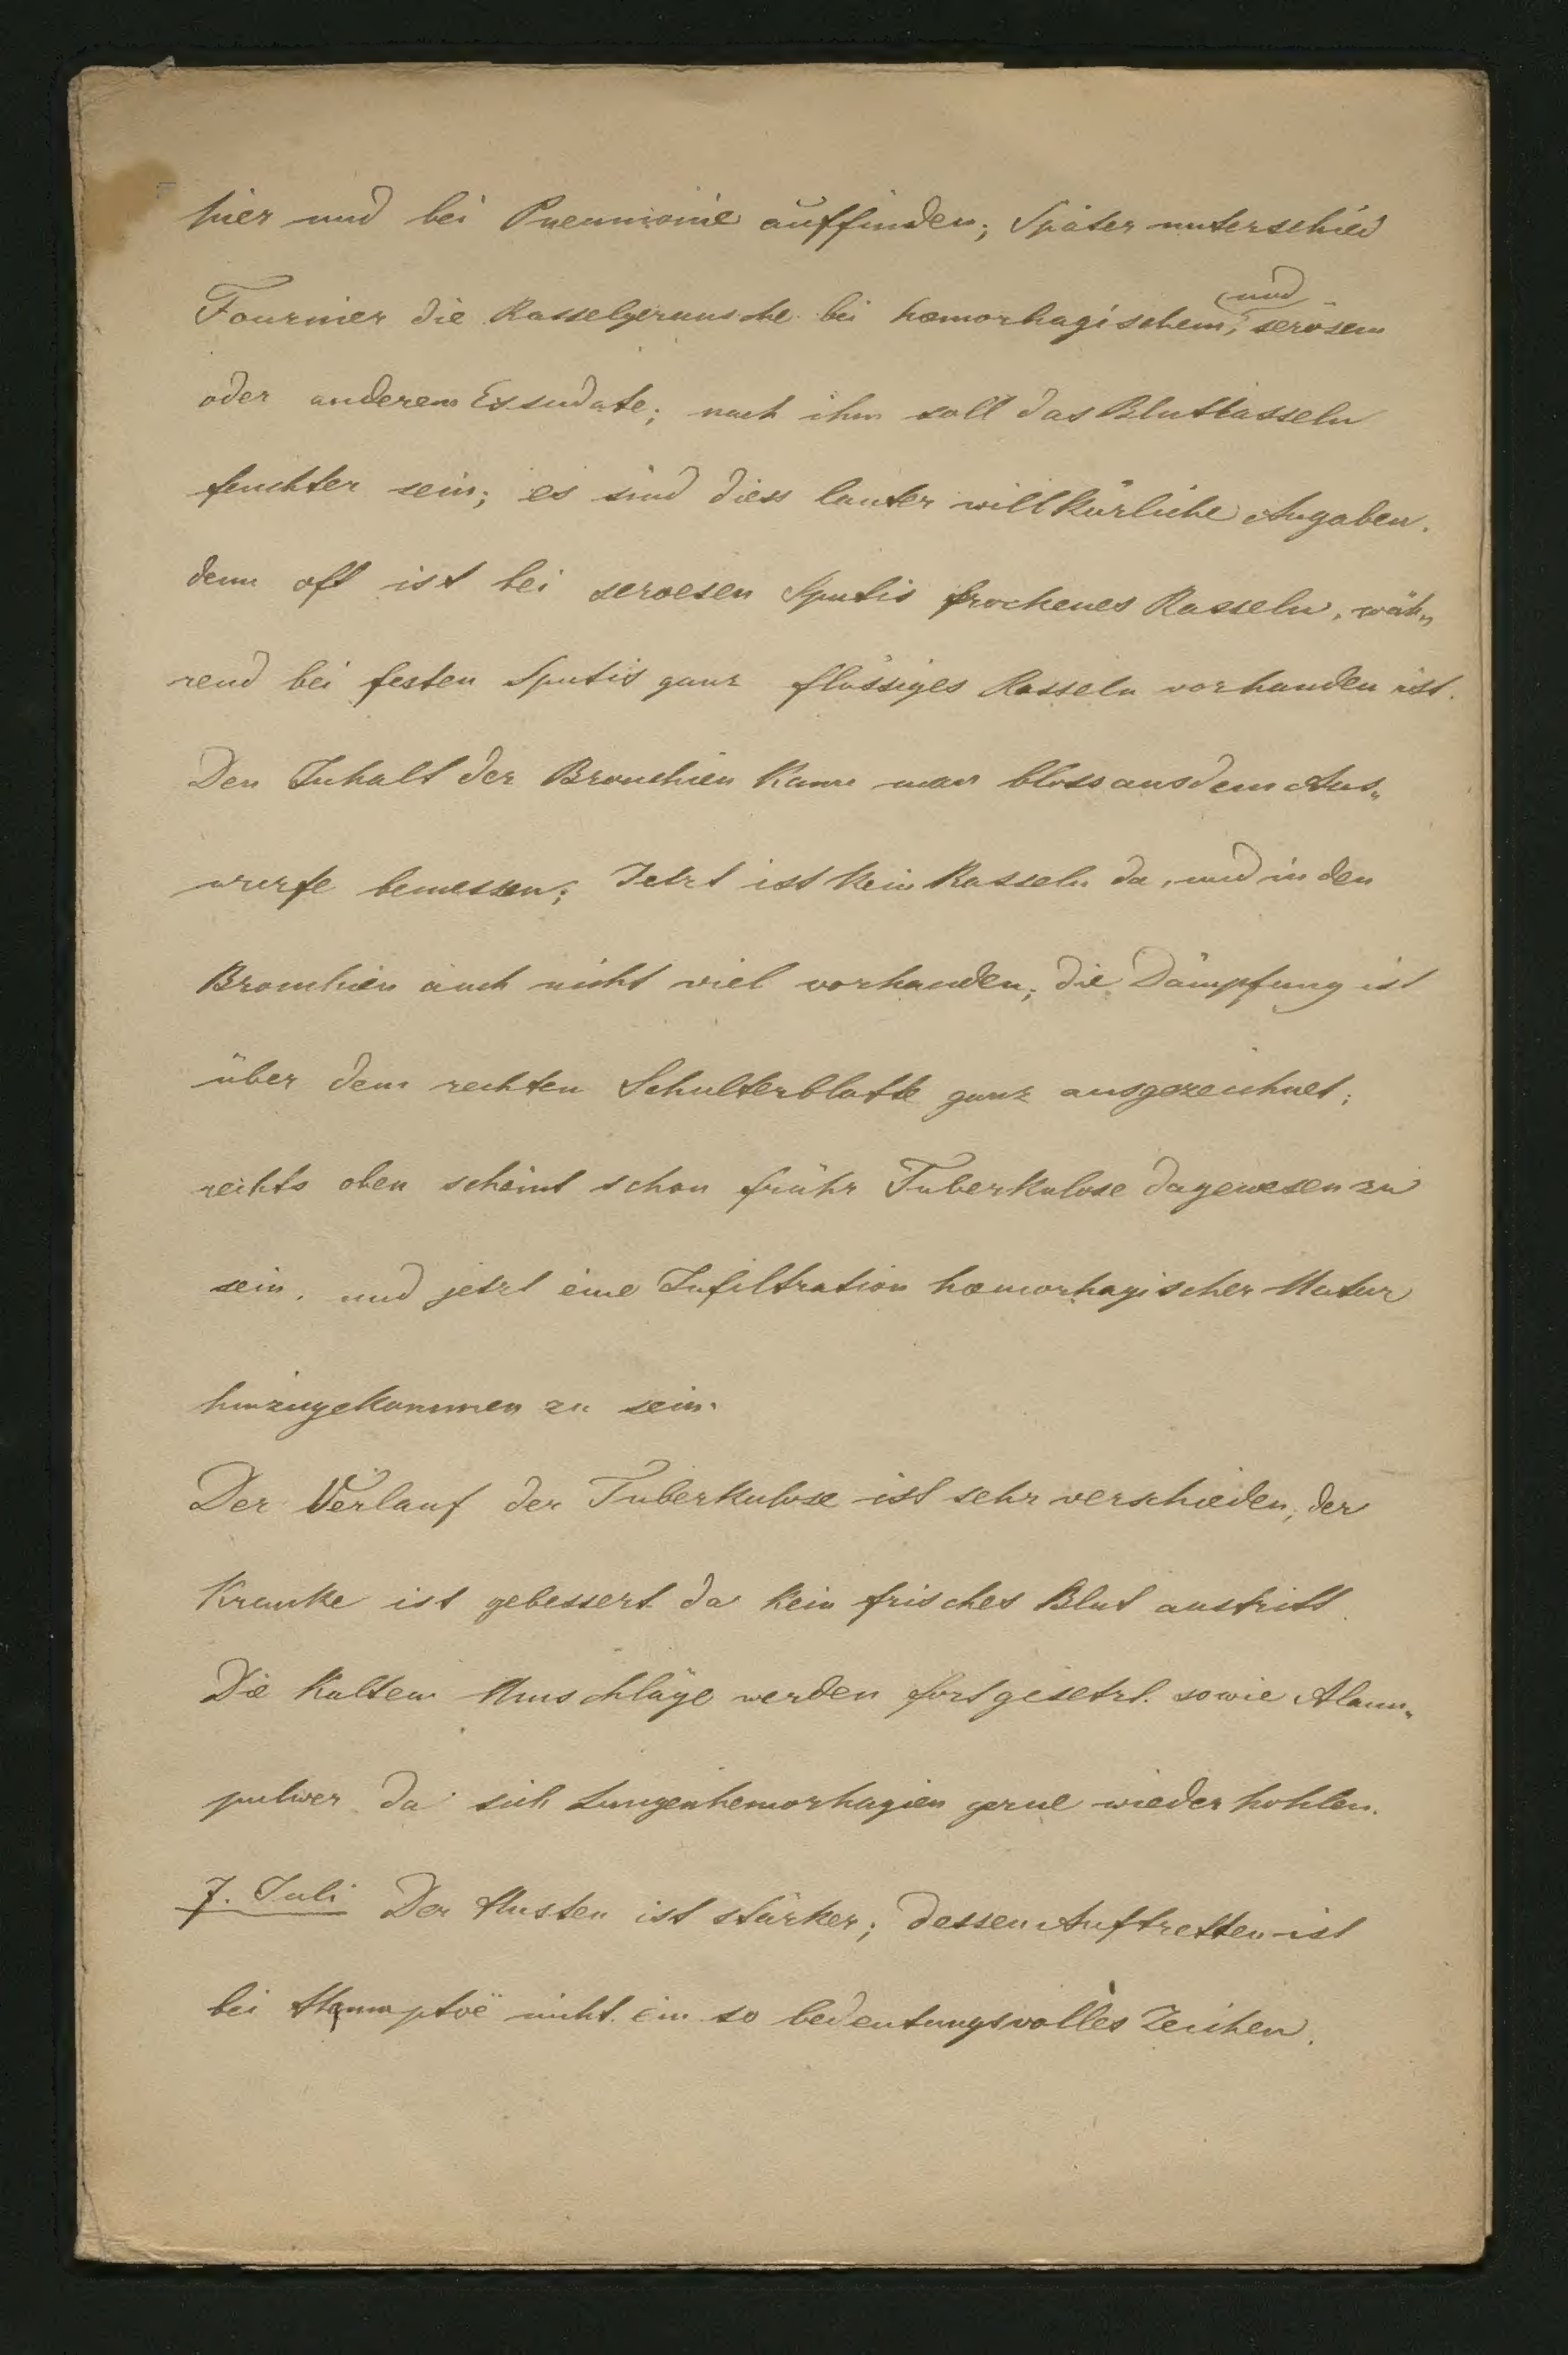 hier und bei Pneumonie auffinden; Später unterschied
Fournier die Rasselgeräusche bei hæmorhagischem, und serösem
oder anderem Exsudate; nach ihm soll das Blutrasseln
feuchter sein; es sind diess lauter willkürliche Angaben.
denn oft ist bei seroesen Sputis trockenes Rasseln, wäh„
rend bei festen Sputis ganz flüssiges Rasseln vorhanden ist.
Den Inhalt der Bronchien kann man bloss aus dem Aus„
wurfe bemessen; Jetzt ist kein Rasseln da, und in den
Bronchien auch nicht viel vorhanden; die Dämpfung ist
über dem rechten Schulterblatte ganz ausgezeichnet;
rechts oben scheint schon frühr Tuberkulose dagewesen zu
sein, und jetzt eine Infiltration hæmorhagischer Natur
hinzugekommen zu sein.
Der Verlauf der Tuberkulose ist sehr verschieden, der
Kranke ist gebessert da kein frisches Blut austritt.
Die kalten Umschläge werden fortgesetzt. sowie Alaun„
pulver da sich Lungenhemorhagien gerne wieder hohlen.
7. Juli Der Husten ist stärker; dessen Auftretten ist
bei Hæmoptoë nicht ein so bedeutungsvolles Zeichen.